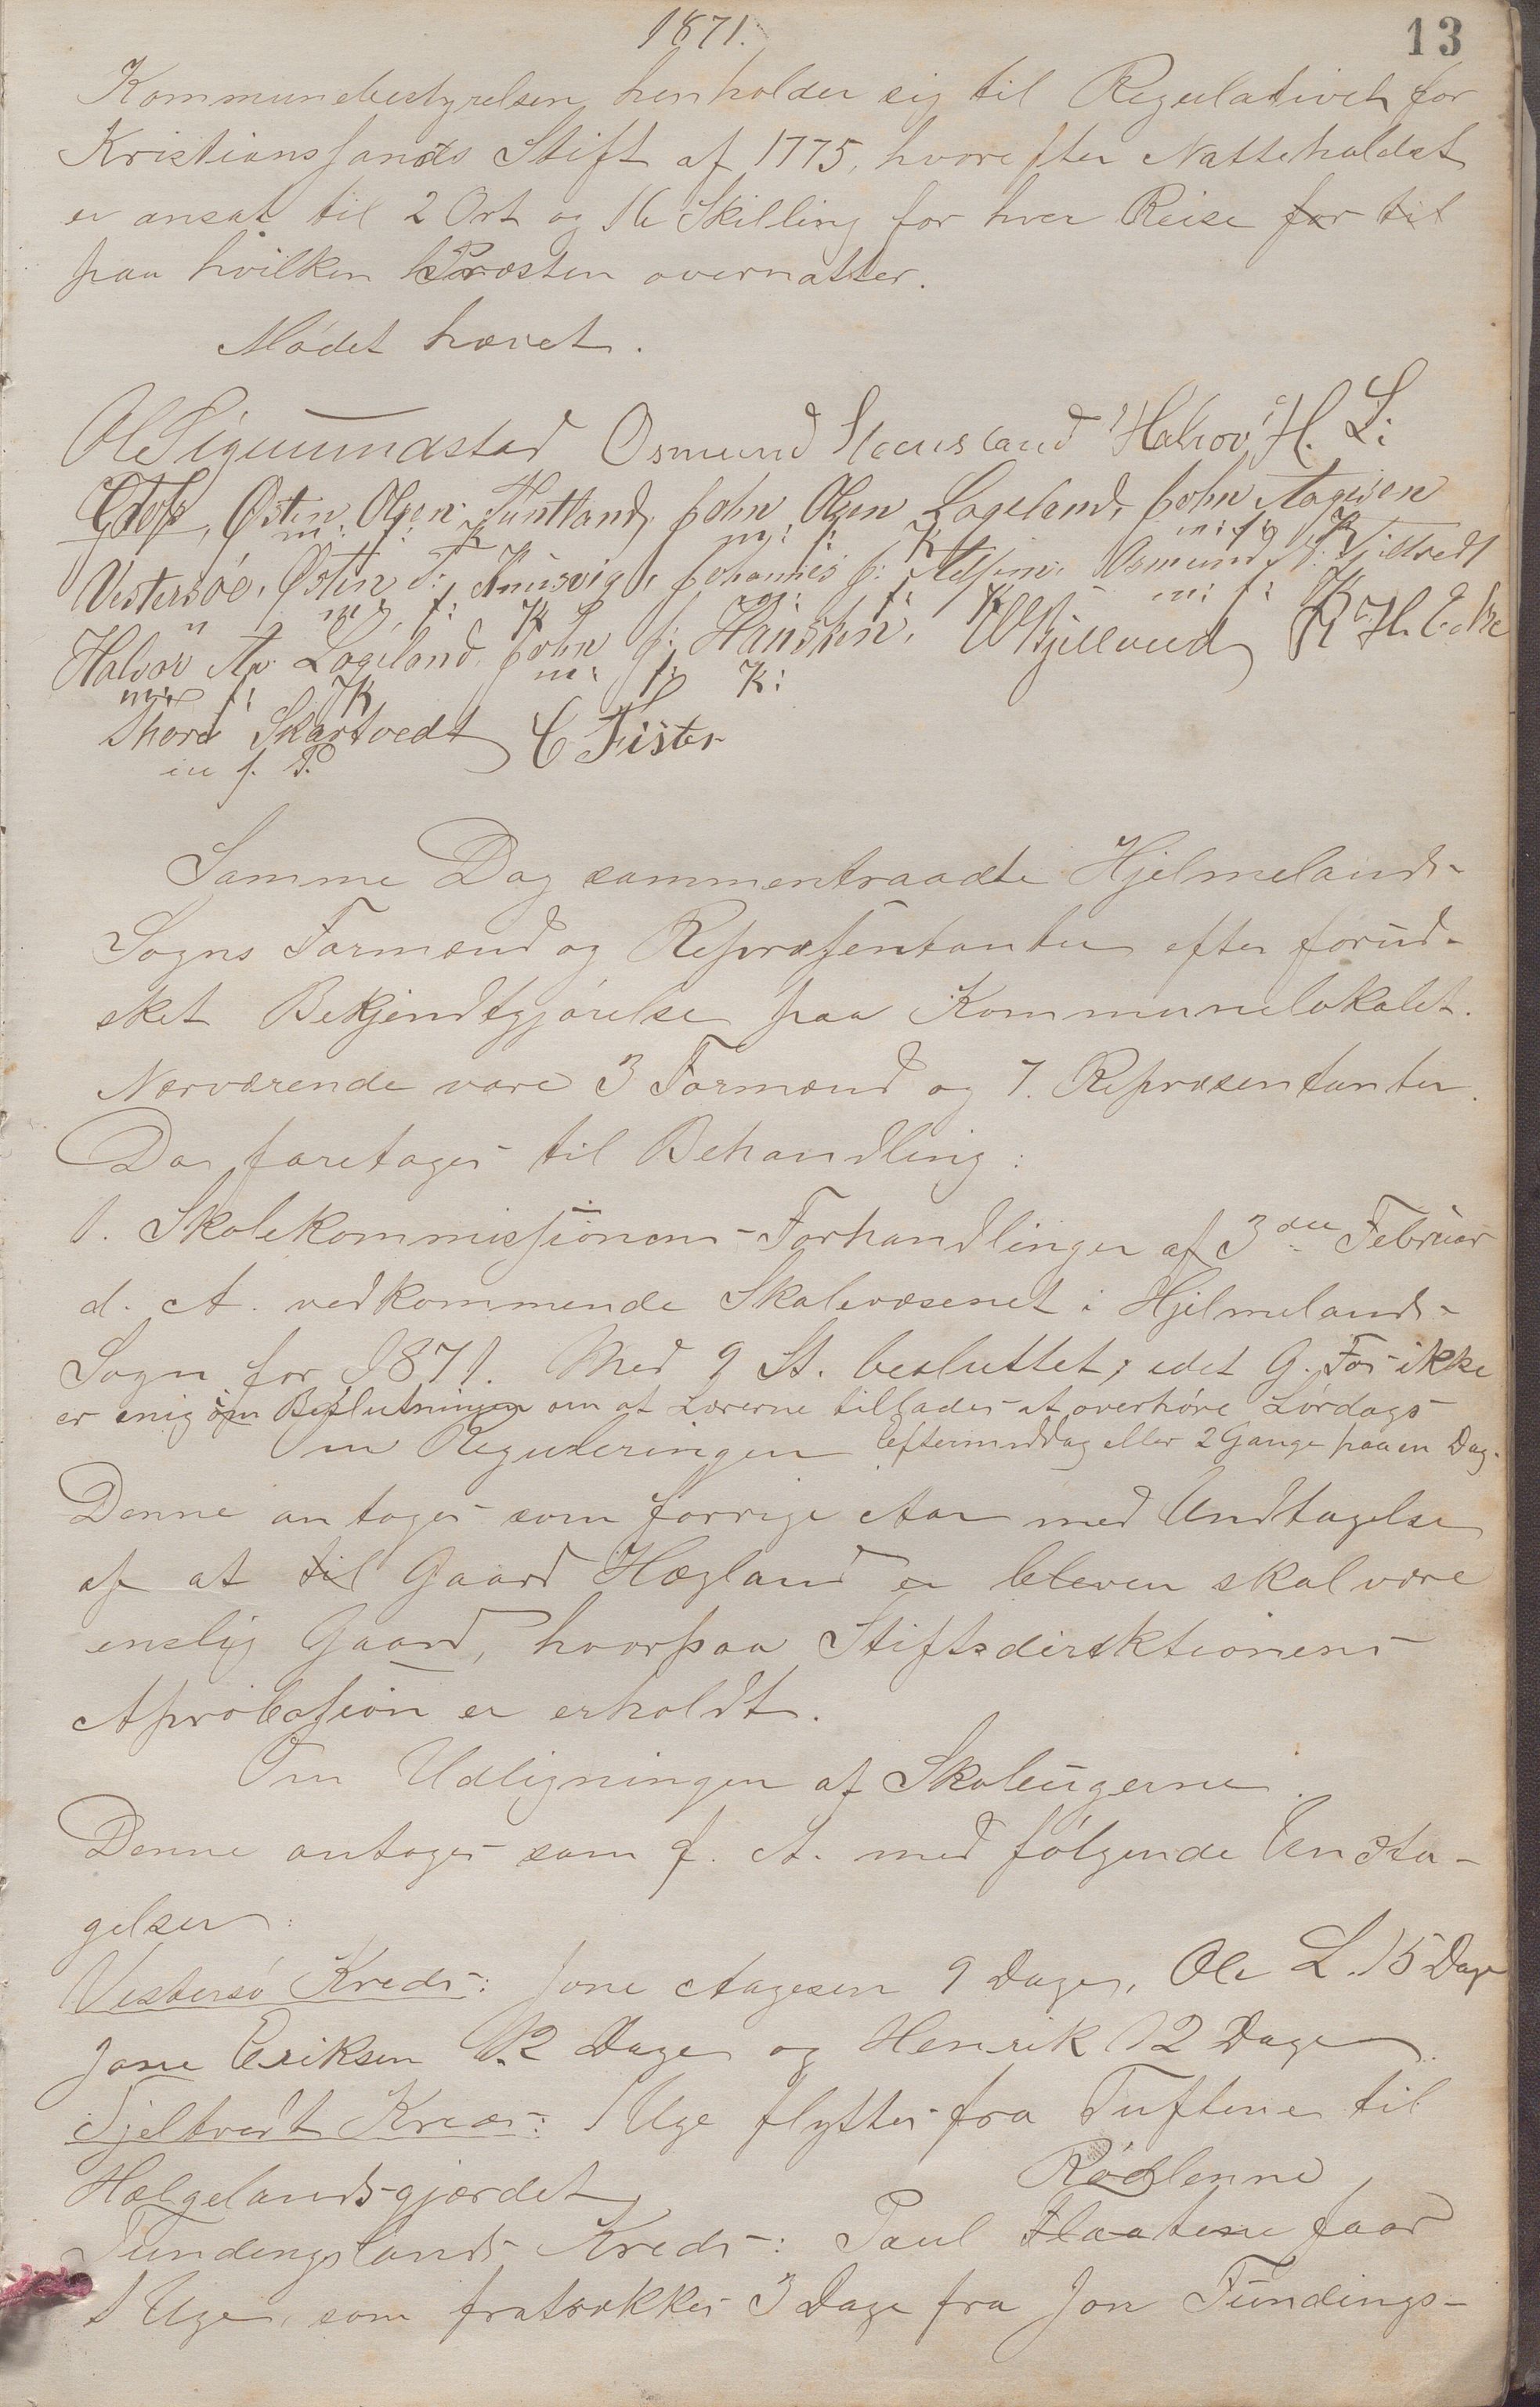 1871.
13
Kommunebestyrelsen henholder sig til Regulativet for
Kristianssands Stift af 1775, hvorefter Natteholdet
er ansat til 2 Ort og 16 Skilling for hver Reise for til
paa hvilken Præsten overnatter.
Mødet hævet.
Ol Sigmundstad Osmund Steensland Halvor H. Li
Østen Olsen Funtland, John Olsen Lageland, John Aagesen
m: f: K m: f: K m: f: K
Vestersøe, Østen T: Knusvig, Johannes J: Osmund T: Tjeltvedt
m: f: K m: f: K m: f: K
Halvor Aa: Lageland John J: Hauskin, W Bjelland R H. Eike
m: f: K m: f: K:
Thore Skartvedt C Fister
m f. P.
Samme Dag sammentraadte Hjelmelands-
Sogns Formænd og Repræsentanter efter forud-
sket Bekjendtgjørelse paa Kommunelokalet.
Nærværende vare 3 Formænd og 7. Repræsentanter.
Da foretages til Behandling:
1. Skolekommissionens Forhandlinger af 3die Februar
d. A. vedkommende Skolevæsenet i Hjelmelands-
Sogn for 1871. Med 9 St. besluttet, idet G. Fos ikke
er enig om Beslutningen om at Lærerne tillades at overhøre Lørdags
Om Reguleringen Eftermiddag eller 2 Gange paa en Dag.
Denne antoges som forrige Aar med Undtagelse
af at til Gaard Hægland er bleven skal være
enslig Gaard, hvorpaa Stiftsdirektionens
Aprobasion er erholdt.
Om Udligningen af Skoleugerne.
Denne antoges som f. A. med følgende Undta-
gelser:
Vestersø Kreds: Jone Aagesen 9 Dage, Ole L. 15 Dage
Jone Eriksen 12 Dage og Henrik 12 Dage.
Tjeltvedt Kreds: 1 Uge flyttes fra Tuftene til
Helgelandsgjærdet
Rødlenne
Tundingslands Kreds: Paul Flaatene faar
1 Uge, som fratrækkes 3 Dage fra Jon Tundings-